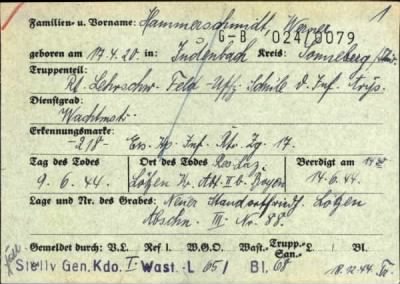 1
Familien- u. Vorname: Hammerschmidt, Werner
G-B 024/0079
geboren am 17.4.20 in: Judenbach Kreis: Sonneberg/Thür.
Truppenteil:
Lehrschw. Feld-Uffz. Schule d. Inf. 
Dienstgrad:
Wachtmstr.
Erkennungsmarke:
-218- Ers. Kp. Inf. Rtr. Zg. 17.
Tag des Todes Ort des Todes Res. Laz. Beerdigt am
9.6.44 Lötzen Abt. II b. Boyen 14.6.44.
Lage und Nr. des Grabes: Neuer Standortfriedh. Lötzen
Abschn. III Nr. 88.
Gemeldet durch: V.L. Ref L. W.G.O. Wast. Trupp.- San.- L Bl.
Stellv Gen. Kdo. I Wast. L 05/ Bl. 68 18.12.44